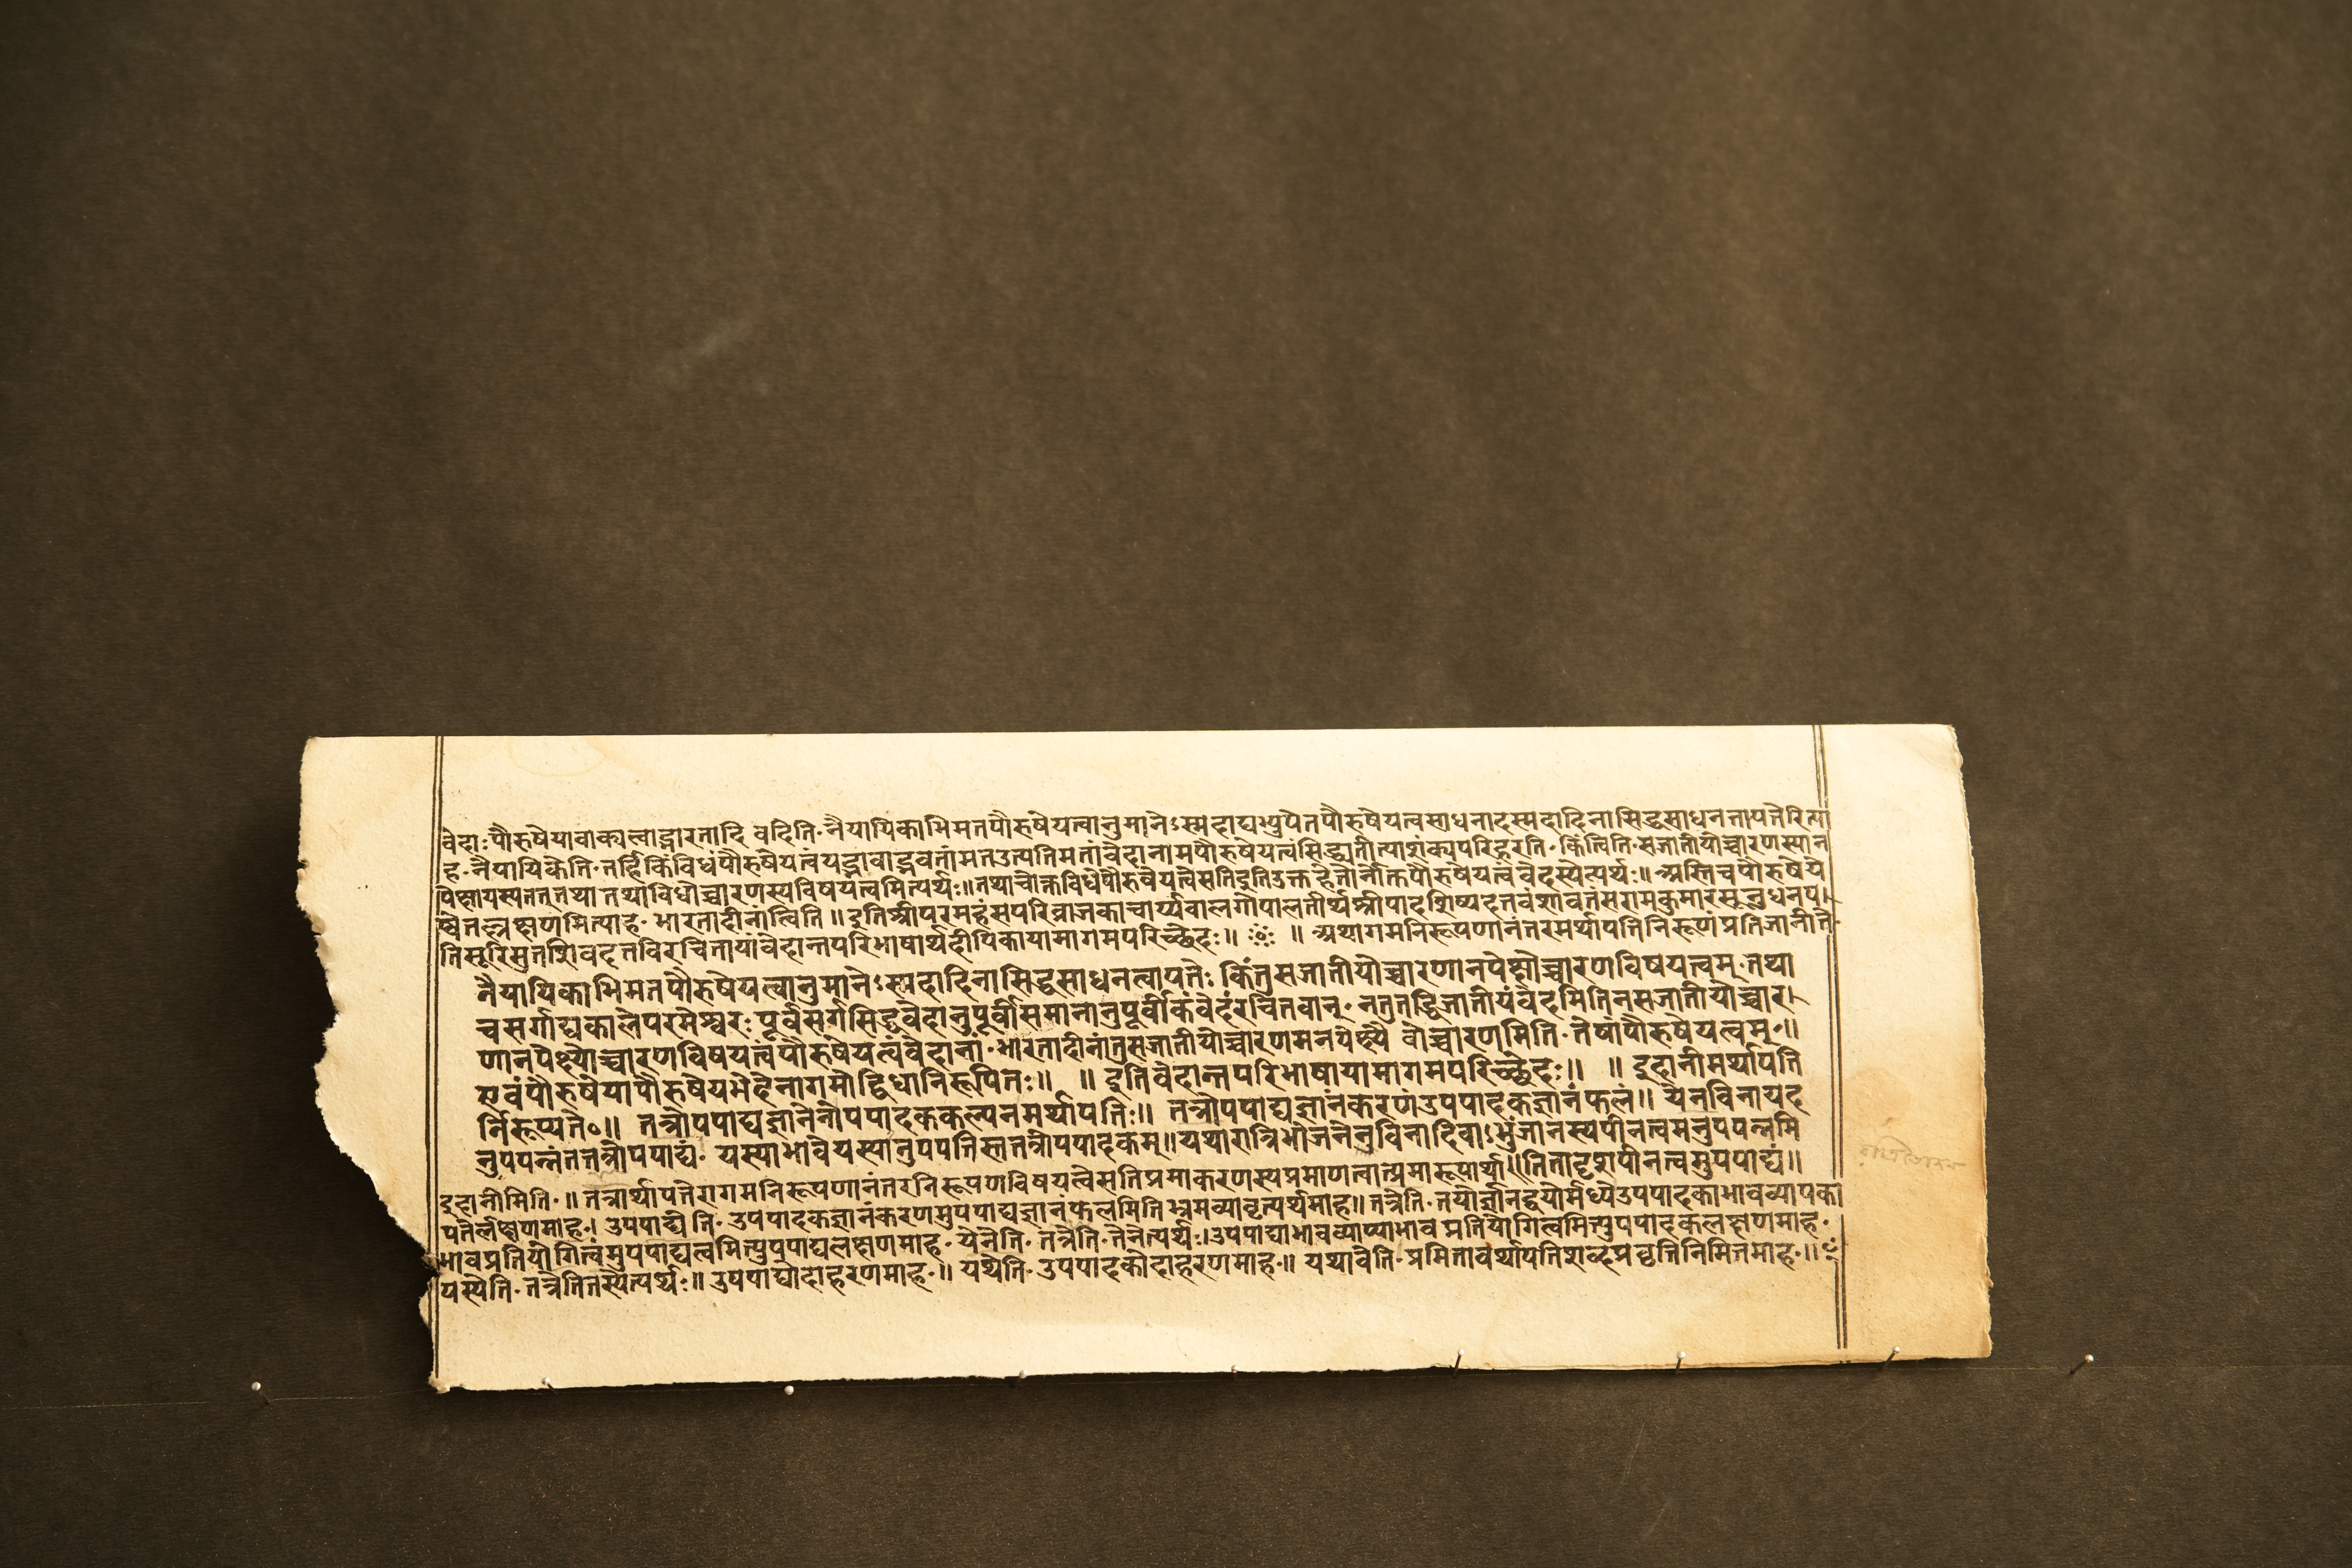 वेदाःपौरुषेयावाक्यत्वाद्भारतादि वदिति॰नैयायिकाभिमतपौरुषेयत्वानुमानेऽस्मदाद्यभ्युपेतपौरुषेयत्वसाधनादस्मदादिनासिद्धसाधनत्तापत्तेरित्या
ह॰नैयायिकेति॰तर्हिकिंविधंपौरुषेयत्वंयद्भावाद्भवतांमतउत्पत्तिमतांवेदानामपौरुषेयत्वंसिद्ध्यतीत्याशंक्यपरिहरति॰किंत्विति॰सजातीयोच्चारणस्यान
पेक्षायस्यतत्तथा तथाविधोच्चारणस्यविषयत्वमित्यर्थः॥तथाचोक्तविधेपौरुषेयत्वेसतिइतिउक्तहेतोर्नोक्तपौरुषेयत्वंवेदस्येत्यर्थः॥अस्तिचपौरुषेये
ष्वेतल्लक्षणमित्याह॰भारतादीनांत्विति॥इतिश्रीपरमहंसपरिव्राजकाचार्य्यबालगोपालतीर्थश्रीपादशिष्यदत्तवंशावतंसरामकुमारसूनुधनप
तिसूरिसुतशिवदत्तविरचितायांवेदान्तपरिभाषार्थदीपिकायामागमपरिच्छेदः॥ ॥अथागमनिरूपणानंतरमर्थापत्तिनिरूणंप्रतिजानीते॰
नैयायिकाभिमतपौरुषेयत्वानुमानेऽस्मदादिनासिद्धसाधनत्वापत्तेः किंतुसजातीयोच्चारणानपेक्षोच्चारणविषयत्वम्॰तथा
चसर्गाद्यकालेपरमेश्वरःपूर्वसर्गसिद्धवेदानुपूर्वीसमानानुपूर्वीकंवेदंरचितवान्॰नतुतद्विजातीयंवेदमितिनसजातीयोच्चार
णानपेक्ष्योच्चारणविषयत्वंपौरुषेयत्वंवेदानां॰भारतादीनांतुसजातीयोच्चारणमनपेक्ष्यै वोच्चारणमिति॰तेषांपौरुषेयत्वम्॰॥
एवंपौरुषेयापौरुषेयभेदेनागमोद्विधानिरूपितः॥ ॥इतिवेदान्तपरिभाषायामागमपरिच्छेदः॥ ॥इदानीमर्थापत्ति
र्निरूप्यते॰॥ तत्रोपपाद्यज्ञानेनोपपादककल्पनमर्थापत्तिः॥ तत्रोपपाद्यज्ञानंकरणंउपपादकज्ञानंफलं॥येनविनायद
नुपपन्नंतत्तत्रोपपाद्यं॰ यस्याभावेयस्यानुपपत्तिस्तत्तत्रोपपादकम्॥यथारात्रिभोजनेनुविनादिवाऽभुंजानस्यपीनत्वमनुपपन्नमि
तितादृशपीनत्वमुपपाद्यं॥
इदानीमिति॰॥तत्रार्थापत्तेरागमनिरूपणानंतरनिरूपणविषयत्वेसतिप्रमाकरणस्यप्रमाणत्वात्प्रमारूपार्था
पत्तेर्लक्षणमाह॰। उपपाद्ये ति॰उपपादकज्ञानंकरणमुपपाद्यज्ञानंफलमितिभ्रमव्यावृत्यर्थमाह॥तत्रेति॰तयोर्ज्ञानद्वयोर्मध्येउपपादकाभावव्यापका
भावप्रतियोगित्वंमुपपाद्यत्वमित्युपपाद्यलक्षणमाह॰येनेति॰तत्रेति॰तेनेत्यर्थः।उपपाद्याभावव्याप्याभाव प्रतियोगित्वमित्युपपादकलक्षणमाह॰
यस्येति॰तत्रेतितस्येत्यर्थः॥उपपाद्योदाहरणमाह॰॥ यथेति॰उपपादकोदाहरणमाह॰॥ यथावेति॰प्रमितावर्थापत्तिशब्दप्रवृत्तिनिमित्तमाह॰॥